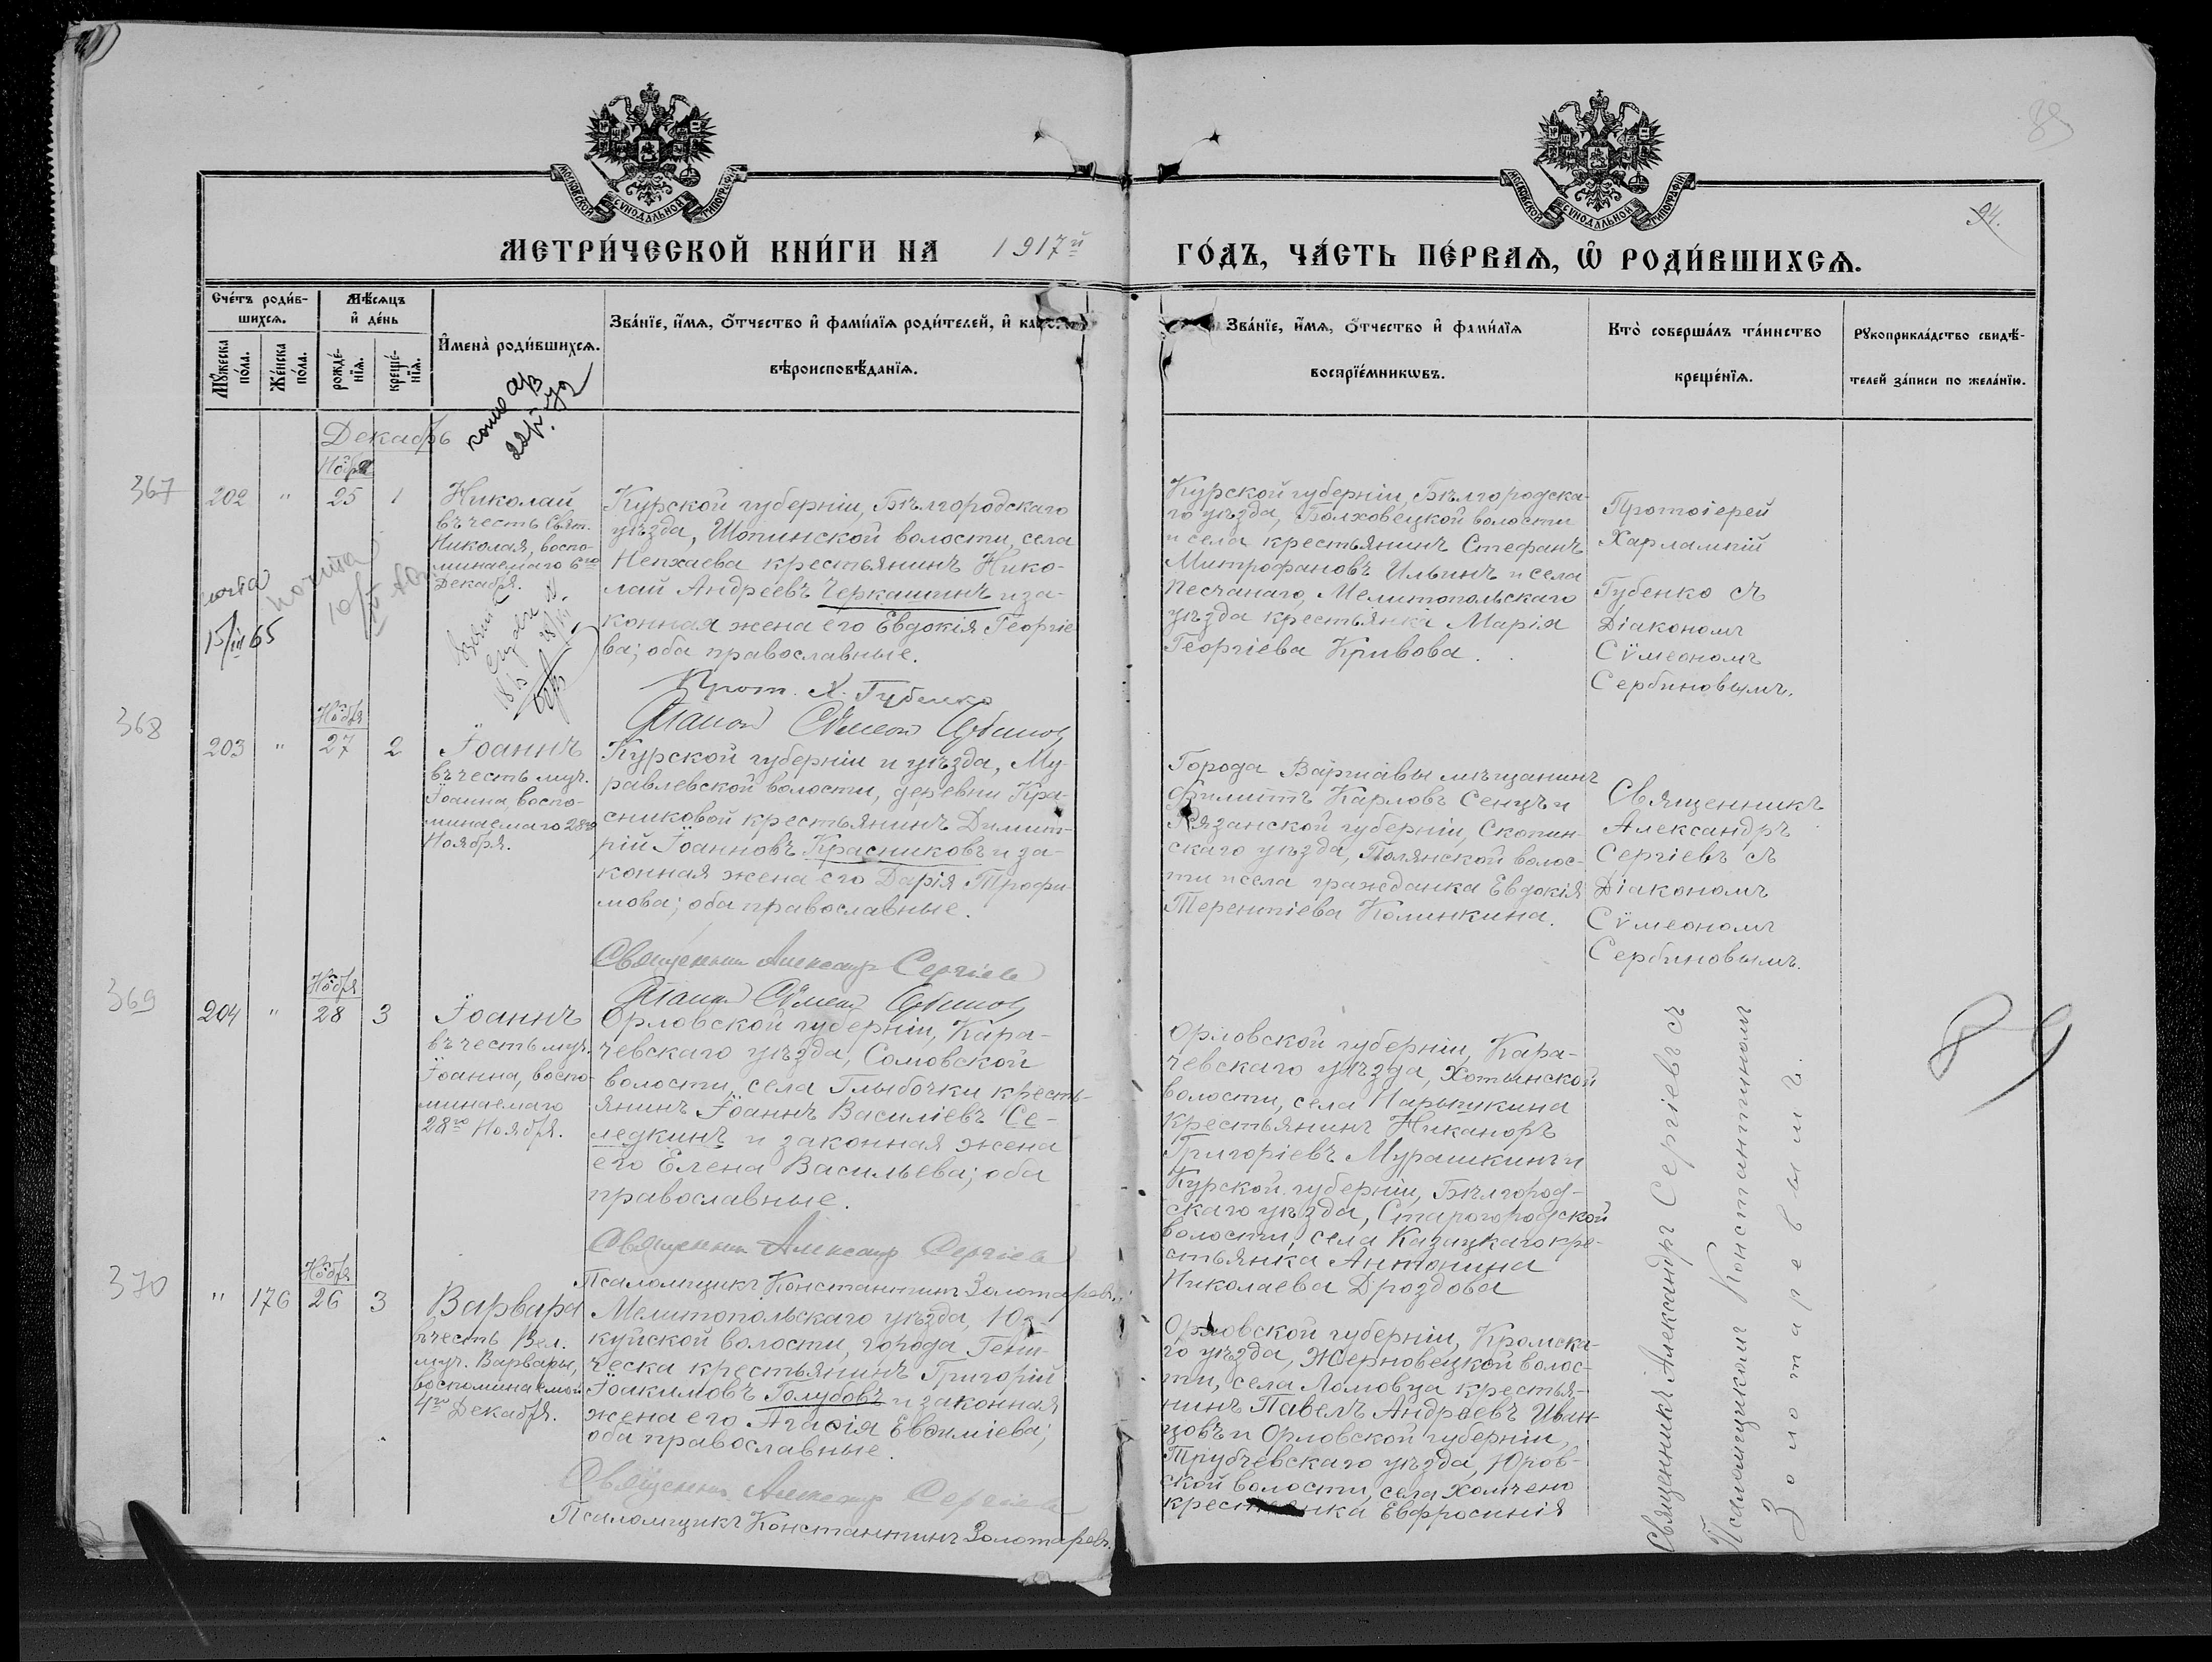 89
94.
МОСКОВСКОЙ СѴНОДАЛЬНОЙ ТИПОГРАФІИ
МОСКОВСКОЙ СѴНОДАЛЬНОЙ ТИПОГРАФІИ
МЕТРИ́ЧЕСКОЙ КНИ́ГИ НА 1917й
ГО́ДЪ, ЧА́СТЬ ПЕ́РВАѦ, Ѡ҆ РОДИ́ВШИХСѦ.
Сче́тъ роди́в-
шихсѧ.
Мꙋ́жеска по́ла.
Же́нска по́ла.
Мѣ́сѧцъ
и҆ де́нь
рожде́-
нїѧ.
креще́-
нїѧ.
И҆мена̀ роди́вшихсѧ.
Зва́нїе, и҆́мѧ, ѻ҆́тчество и҆ фами́лїѧ роди́телей, и҆
вѣроисповѣ́данїѧ.
Зва́нїе, и҆́мѧ, ѻ҆́тчество и҆ фами́лїѧ
воспрїе́мникѡвъ.
Кто̀ соверша́лъ та́инство
креще́нїѧ.
Рꙋкоприкла́дство свидѣ́-
телей за́писи по жела́нїю.
Декабрь
367
202 " Нояб. 25 1
Николай
въ честь Свят.
Николая, воспо-
минаемаго 6го
Декабря.
Курской губерніи, Бѣлгородскаго
уѣзда, Шопинской волости, села
Непхаева крестьянинъ Нико-
лай Андреевъ Черкашинъ и за-
конная жена его Евдокія Георгіе
ва; оба православные.
Прот. Х. Губенко
Діакон Сѵмеон Сербинов
Курской губерніи, Бѣлгородска-
го уѣзда, Болховецкой волости
и села крестьянинъ Стефанъ
Митрофановъ Ильинъ и села
Песчанаго, Мелитопольскаго
уѣзда крестьянка Марія
Георгіева Кривова.
Протоіерей
Харлампій
Губенко съ
Діакономъ
Сѵмеономъ
Сербиновымъ.
почта
15/III 65
368
203 " Ноябр. 27 2
Іоаннъ
въ честь муч.
Іоанна, воспо-
минаемаго 28го
Ноября.
Курской губерніи и уѣзда, Му-
равлевской волости, деревни Кра-
сниковой крестьянинъ Димит-
рій Іоанновъ Красниковъ и за-
конная жена его Дарія Трофи-
мова; оба православные.
Священник Александр Сергіев
Діакон Сѵмеон Сербинов
Города Варшавы мѣщанинъ
Филиппъ Карловъ Сенцъ и
Рязанской губерніи, Скопин-
скаго уѣзда, Полянской волос-
ти и села гражданка Евдокія
Терентіева Калинкина.
Священникъ
Александръ
Сергіевъ съ
Діакономъ
Сѵмеономъ
Сербиновымъ.
369
204 " Ноября 28 3
Іоаннъ
въ честь муч.
Іоанна, воспо-
минаемаго
28го Ноября.
Орловской губерніи, Кара-
чевскаго уѣзда, Сомовской
волости, села Глыбочки кресть-
янинъ Іоаннъ Василіевъ Се-
ледкинъ и законная жена
его Елена Васильева; оба
православные.
Священник Александр Сергіев
Псаломщикъ Константинъ Золотаревъ.
Орловской губерніи, Кара-
чевскаго уѣзда, Хотынской
волости, села Нарышкина
крестьянинъ Никаноръ
Григоріевъ Мурашкинъ и
Курской губерніи, Бѣлгород-
скаго уѣзда, Старогородской
волости, села Казацкаго кре-
стьянка Антонина
Николаева Дроздова
Священникъ Александръ Сергіевъ съ
Псаломщикомъ Константиномъ
Золотаревымъ.
89
370
" 176 Ноября 26 3
Варвара
въ честь Вел.
муч. Варвары,
воспоминаемой
4го Декабря.
Мелитопольскаго уѣзда, Юз-
куйской волости, города Гени-
ческа крестьянинъ Григорій
Іоакимовъ Голубовъ и законная
жена его Агаѳія Евѳиміева;
оба православные.
Священник Александр Сергіев
Псаломщикъ Константинъ Золотаревъ.
Орловской губерніи, Кромска-
го уѣзда, Жерновецкой волос-
ти, села Ломовца крестья-
нинъ Павелъ Андреевъ Иван-
цовъ и Орловской губерніи,
Трубчевскаго уѣзда, Юров-
ской волости, села Холчено
крестьянка Евфросинія